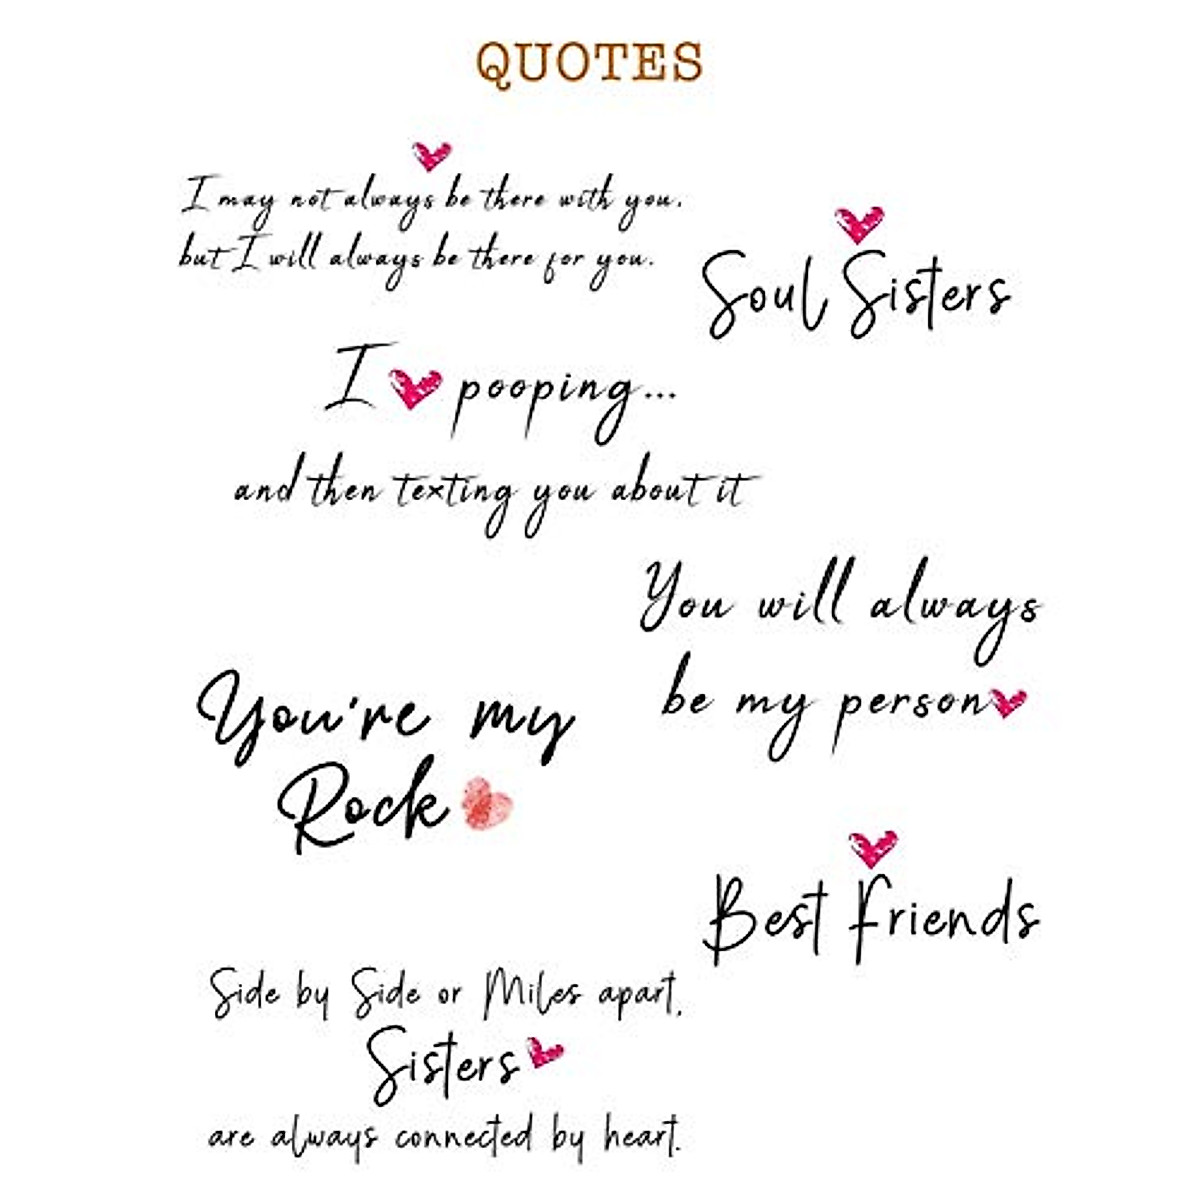 QUOTES
I may not always be there with you,
but I will always be there for you.
Soul Sisters
I pooping...
and then texting you about it
You will always
be my person
You're my
Rock
Best Friends
Side by Side or Miles apart,
Sisters
are always connected by heart.